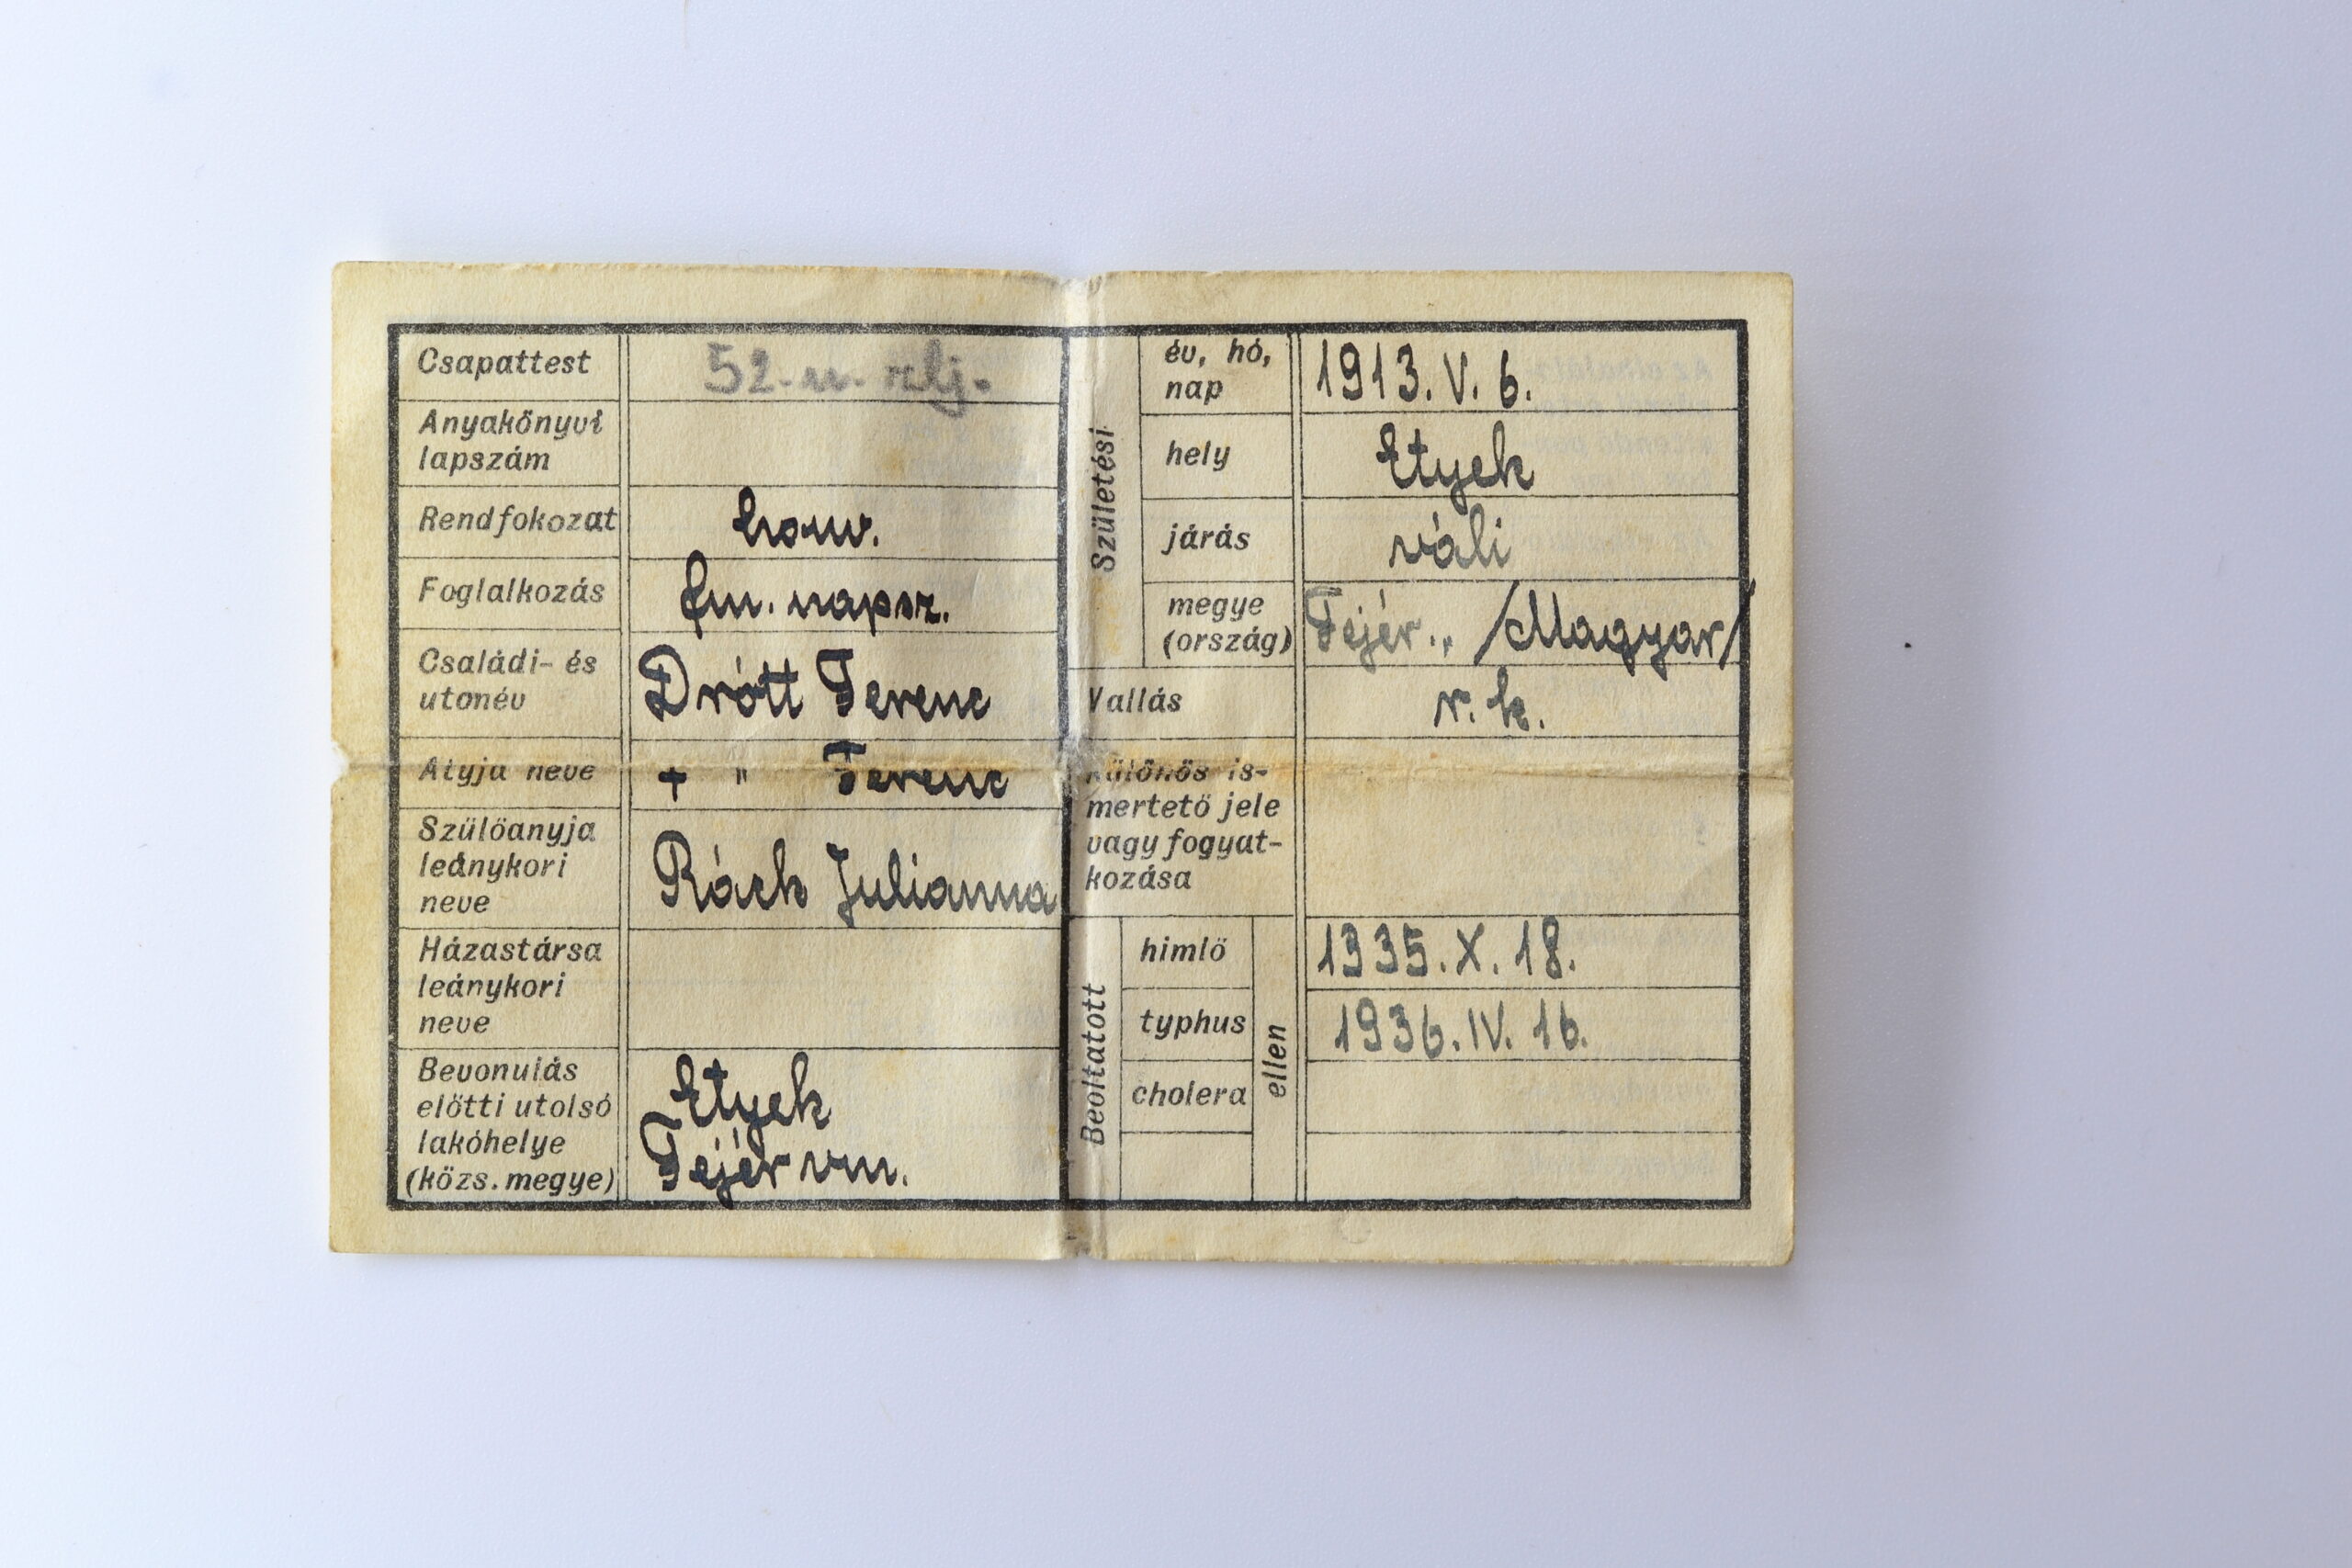 Csapattest 52.
Anyakönyvi
lapszám
Rendfokozat honv.
Foglalkozás fm. napsz.
Családi- és
utónév Drótt Ferenc
Atyja neve + " Ferenc
Szülőanyja
leánykori
neve Rách Julianna
Házastársa
leánykori
neve
Bevonulás
előtti utolsó
lakóhelye
(közs. megye)
Etyek
Fejér vm.
Születési
év, hó,
nap 1913. V. 6.
hely Etyek
járás váli
megye
(ország) Fejér „ /Magyar/
Vallás r. k.
Különös is-
mertető jele
vagy fogyat-
kozása
Beoltatott
himlő 1935. X. 18.
typhus 1936. IV. 16.
cholera
ellen